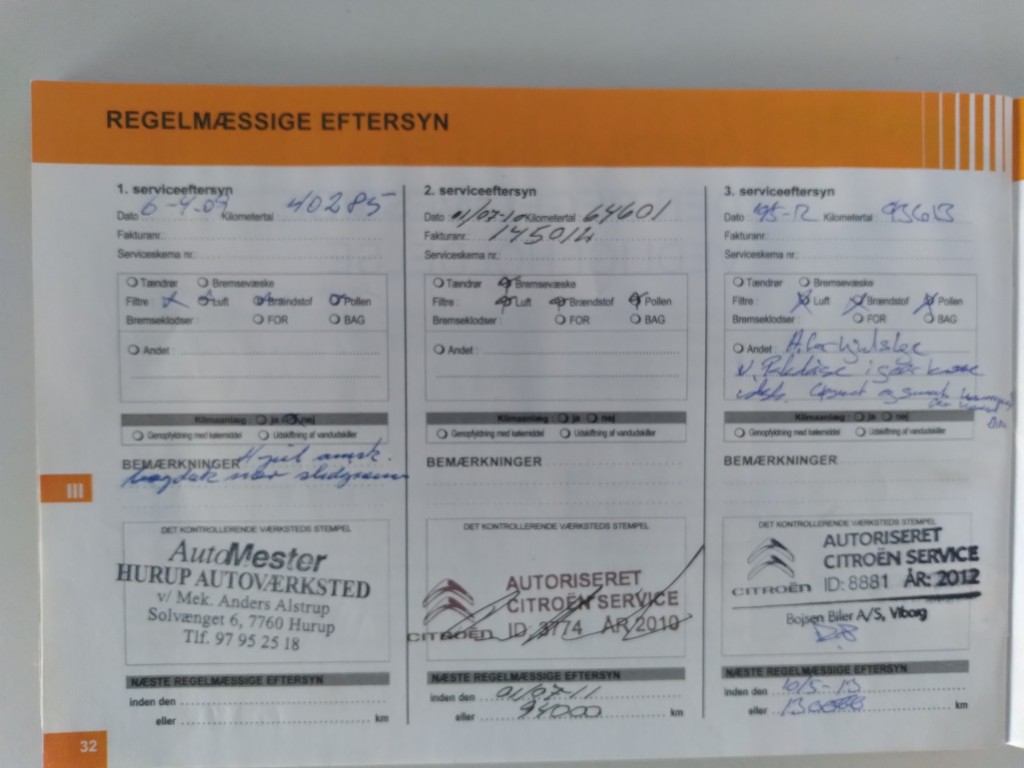 REGELMÆSSIGE EFTERSYN
1. serviceeftersyn
Dato 6-4.09 Kilometertal 40285
Fakturanr.:
Serviceskema nr.:
Tændrør Bremsevæske
Filtre : Luft Brændstof Pollen
Bremseklodser : FOR BAG
Andet :
Klimaanlæg : ja nej
Genopfyldning med kølemiddel Udskiftning af vandudskiller
BEMÆRKNINGER
bagdæk nær
DET KONTROLLERENDE VÆRKSTEDS STEMPEL
AutoMester
HURUP AUTOVÆRKSTED
v/ Mek. Anders Alstrup
Solvænget 6, 7760 Hurup
Tlf. 97 95 25 18
NÆSTE REGELMÆSSIGE EFTERSYN
inden den
eller km
2. serviceeftersyn
Dato 01/07-10 Kilometertal : 64601
Fakturanr.: 145014
Serviceskema nr.:
Tændrør Bremsevæske
Filtre : Luft Brændstof Pollen
Bremseklodser : FOR BAG
Andet :
Klimaanlæg : ja nej
Genopfyldning med kølemiddel Udskiftning af vandudskiller
BEMÆRKNINGER
DET KONTROLLERENDE VÆRKSTEDS STEMPEL
AUTORISERET
CITROËN SERVICE
CITROËN ID: 3774 ÅR 2010
NÆSTE REGELMÆSSIGE EFTERSYN
inden den 01/07-11
eller 94000 km
3. serviceeftersyn
Dato Kilometertal : 93613
Fakturanr.:
Serviceskema nr.:
Tændrør Bremsevæske
Filtre : Luft Brændstof Pollen
Bremseklodser : FOR BAG
Andet :
Klimaanlæg : ja nej
Genopfyldning med kølemiddel Udskiftning af vandudskiller
BEMÆRKNINGER
DET KONTROLLERENDE VÆRKSTEDS STEMPEL
AUTORISERET
CITROËN SERVICE
CITROËN ID: 8881 ÅR: 2012
Bojsen Biler A/S, Viborg
NÆSTE REGELMÆSSIGE EFTERSYN
inden den 10/5-13
eller 130000 km
III
32